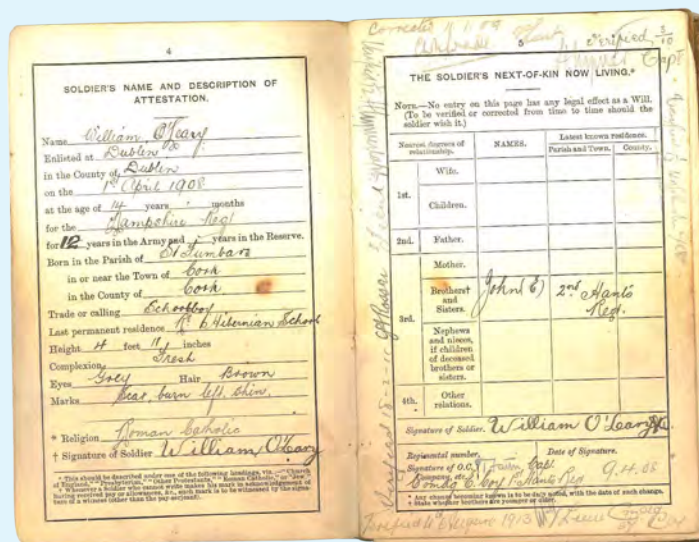 4
SOLDIER'S NAME AND DESCRIPTION OF
ATTESTATION.
Name William O'Leary
Enlisted at Dublin
in the County of Dublin
on the 1st April 1908
at the age of 14 years months
for the Hampshire Regt
for 12 years in the Army and years in the Reserve.
Born in the Parish of St Finbars
in or near the Town of Cork
in the County of Cork
Trade or calling Schoolboy
Last permanent residence Hibernian School
Height 4 feet 11 inches
Complexion Fresh
Eyes Grey Hair Brown
Marks Scar, burn left shin.
* Religion Roman Catholic
† Signature of Soldier William O'Leary
* This should be described under one of the following headings, viz.:—"Church
of England," "Presbyterian," "Other Protestants," "Roman Catholic," or "Jew."
† Whenever a Soldier who cannot write makes his mark in acknowledgement of
having received pay or allowances, &c., such mark is to be witnessed by the signa-
ture of a witness (other than the pay-serjeant).
Corrected
5
Verified
Capt
THE SOLDIER'S NEXT-OF-KIN NOW LIVING.*
NOTE.—No entry on this page has any legal effect as a Will.
(To be verified or corrected from time to time should the
soldier wish it.)
Nearest degrees of
relationship.
NAMES.
Latest known residence.
Parish and Town.
County.
1st.
Wife.
Children.
2nd.
Father.
3rd.
Mother.
Brothers†
and
Sisters.
John (E)
2nd Hants
Regt.
Nephews
and nieces,
if children
of deceased
brothers or
sisters.
4th.
Other
relations.
Signature of Soldier. William O'Leary
Regimental number.
Date of Signature.
Signature of O.C. Capt.
Company, etc.
9.4.08
* Any change becoming known is to be duly noted, with the date of each change.
† State whether brothers are younger or elder.
Verified August 1913